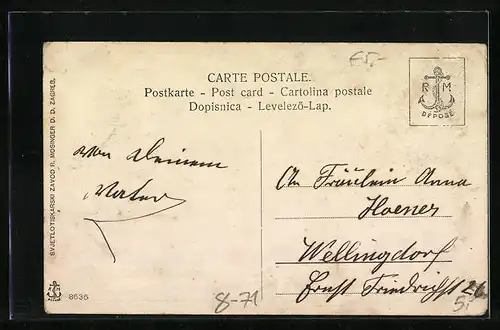 €5.-
CARTE POSTALE.
Postkarte - Post card - Cartolina postale
Dopisnica - Levelező-Lap.
R M
DÉPOSÉ
SVJETLOTISKARSKI ZAVOD R. MOSINGER D. D. ZAGREB.
von Deinem
Vater
An Fräulein Anna
Hoener
Wellingdorf
Ernst Friedrichst 26
8636
8-71
5.-